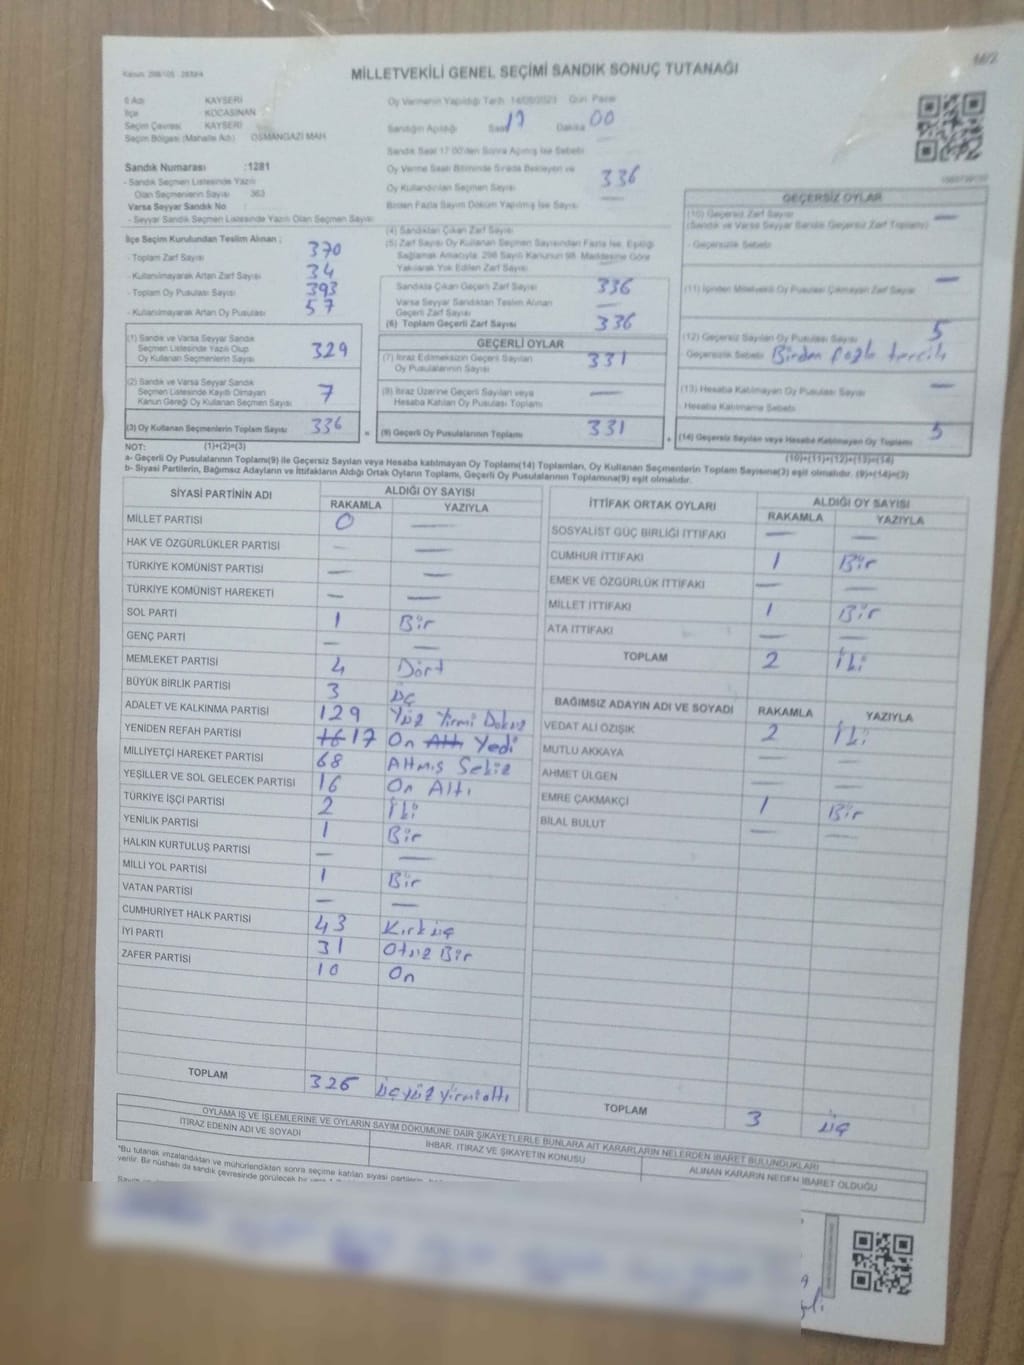 66/2
Kanun: 298/105 - 2839/4
MİLLETVEKİLİ GENEL SEÇİMİ SANDIK SONUÇ TUTANAĞI
İl Adı : KAYSERİ
İlçe : KOCASİNAN
Seçim Çevresi : KAYSERİ
Seçim Bölgesi (Mahalle Adı) : OSMANGAZİ MAH
Sandık Numarası : 1281
- Sandık Seçmen Listesinde Yazılı
Olan Seçmenlerin Sayısı : 363
Varsa Seyyar Sandık No :
- Seyyar Sandık Seçmen Listesinde Yazılı Olan Seçmen Sayısı
Oy Vermenin Yapıldığı Tarih: 14/05/2023 Gün: Pazar
Sandığın Açıldığı Saat 17 Dakika 00
Sandık Saat 17:00'den Sonra Açılmış İse Sebebi
Oy Verme Saati Bitiminde Sırada Bekleyen ve
Oy Kullandırılan Seçmen Sayısı 336
Birden Fazla Sayım Döküm Yapılmış İse Sayısı —
İlçe Seçim Kurulundan Teslim Alınan ;
- Toplam Zarf Sayısı 370
- Kullanılmayarak Artan Zarf Sayısı 34
- Toplam Oy Pusulası Sayısı 393
- Kullanılmayarak Artan Oy Pusulası 57
(1) Sandık ve Varsa Seyyar Sandık
Seçmen Listesinde Yazılı Olup
Oy Kullanan Seçmenlerin Sayısı 329
(2) Sandık ve Varsa Seyyar Sandık
Seçmen Listesinde Kayıtlı Olmayan
Kanun Gereği Oy Kullanan Seçmen Sayısı 7
(3) Oy Kullanan Seçmenlerin Toplam Sayısı 336
(4) Sandıktan Çıkan Zarf Sayısı
(5) Zarf Sayısı Oy Kullanan Seçmen Sayısından Fazla İse, Eşitliği
Sağlamak Amacıyla, 298 Sayılı Kanunun 98. Maddesine Göre
Yakılarak Yok Edilen Zarf Sayısı
Sandıkta Çıkan Geçerli Zarf Sayısı 336
Varsa Seyyar Sandıktan Teslim Alınan
Geçerli Zarf Sayısı —
(6) Toplam Geçerli Zarf Sayısı 336
GEÇERLİ OYLAR
(7) İtiraz Edilmeksizin Geçerli Sayılan
Oy Pusulalarının Sayısı 331
(8) İtiraz Üzerine Geçerli Sayılan veya
Hesaba Katılan Oy Pusulası Toplamı —
= (9) Geçerli Oy Pusulalarının Toplamı 331
GEÇERSİZ OYLAR
(10) Geçersiz Zarf Sayısı —
(Sandık ve Varsa Seyyar Sandık Geçersiz Zarf Toplamı)
- Geçersizlik Sebebi
(11) İçinden Milletvekili Oy Pusulası Çıkmayan Zarf Sayısı —
(12) Geçersiz Sayılan Oy Pusulası Sayısı 5
Geçersizlik Sebebi Birden fazla tercih
(13) Hesaba Katılmayan Oy Pusulası Sayısı —
- Hesaba Katılmama Sebebi
+ (14) Geçersiz Sayılan veya Hesaba Katılmayan Oy Toplamı 5
NOT: (1)+(2)=(3)
(10)+(11)+(12)+(13)=(14)
a- Geçerli Oy Pusulalarının Toplamı(9) ile Geçersiz Sayılan veya Hesaba katılmayan Oy Toplamı(14) Toplamları, Oy Kullanan Seçmenlerin Toplam Sayısına(3) eşit olmalıdır. (9)+(14)=(3)
b- Siyasi Partilerin, Bağımsız Adayların ve İttifakların Aldığı Ortak Oyların Toplamı, Geçerli Oy Pusulalarının Toplamına(9) eşit olmalıdır.
SİYASİ PARTİNİN ADI ALDIĞI OY SAYISI
RAKAMLA YAZIYLA
MİLLET PARTİSİ 0 —
HAK VE ÖZGÜRLÜKLER PARTİSİ — —
TÜRKİYE KOMÜNİST PARTİSİ — —
TÜRKİYE KOMÜNİST HAREKETİ — —
SOL PARTİ 1 Bir
GENÇ PARTİ — —
MEMLEKET PARTİSİ 4 Dört
BÜYÜK BİRLİK PARTİSİ 3 Üç
ADALET VE KALKINMA PARTİSİ 129 Yüz Yirmi Dokuz
YENİDEN REFAH PARTİSİ 16 17 On Altı Yedi
MİLLİYETÇİ HAREKET PARTİSİ 68 Altmış Sekiz
YEŞİLLER VE SOL GELECEK PARTİSİ 16 On Altı
TÜRKİYE İŞÇİ PARTİSİ 2 İki
YENİLİK PARTİSİ 1 Bir
HALKIN KURTULUŞ PARTİSİ — —
MİLLİ YOL PARTİSİ 1 Bir
VATAN PARTİSİ — —
CUMHURİYET HALK PARTİSİ 43 Kırk üç
İYİ PARTİ 31 Otuz Bir
ZAFER PARTİSİ 10 On
TOPLAM 326 üçyüz Yirmialtı
İTTİFAK ORTAK OYLARI ALDIĞI OY SAYISI
RAKAMLA YAZIYLA
SOSYALİST GÜÇ BİRLİĞİ İTTİFAKI — —
CUMHUR İTTİFAKI 1 Bir
EMEK VE ÖZGÜRLÜK İTTİFAKI — —
MİLLET İTTİFAKI 1 Bir
ATA İTTİFAKI — —
TOPLAM 2 İki
BAĞIMSIZ ADAYIN ADI VE SOYADI RAKAMLA YAZIYLA
VEDAT ALİ ÖZIŞIK 2 İki
MUTLU AKKAYA — —
AHMET ÜLGEN — —
EMRE ÇAKMAKÇİ 1 Bir
BİLAL BULUT — —
TOPLAM 3 üç
OYLAMA İŞ VE İŞLEMLERİNE VE OYLARIN SAYIM DÖKÜMÜNE DAİR ŞİKAYETLERLE BUNLARA AİT KARARLARIN NELERDEN İBARET BULUNDUKLARI
İTİRAZ EDENİN ADI VE SOYADI İHBAR, İTİRAZ VE ŞİKAYETİN KONUSU ALINAN KARARIN NEDEN İBARET OLDUĞU
*Bu tutanak imzalandıktan ve mühürlendikten sonra seçime katılan siyasi partilerin,
verilir. Bir nüshası da sandık çevresinde görülecek bir yere